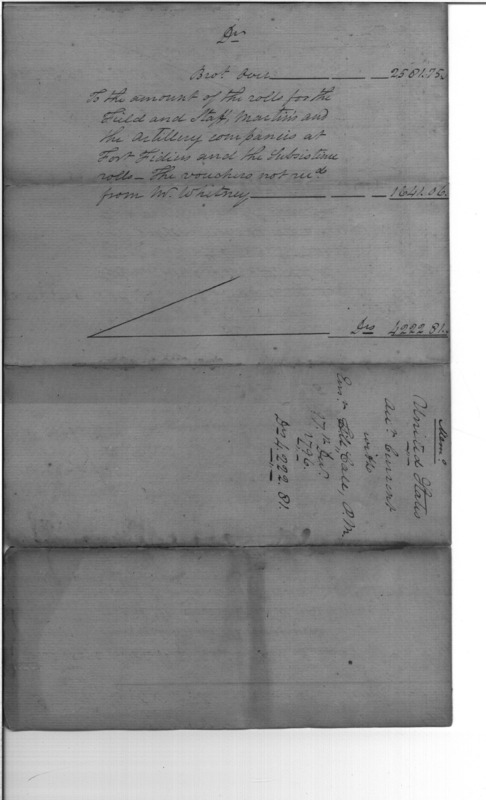 Drs
Brot over 2581.75
To the amount of the rolls for the
Field and Staff, Martins and
the artillery companies at
Fort Fidius and the Subsistence
rolls - The vouchers not recd
from Mr. Whitney 1641.06
Drs 4222 81
Memo
United States
Acct Current
with
Edwd Call, P.M.
1796
Drs 4,222.81.